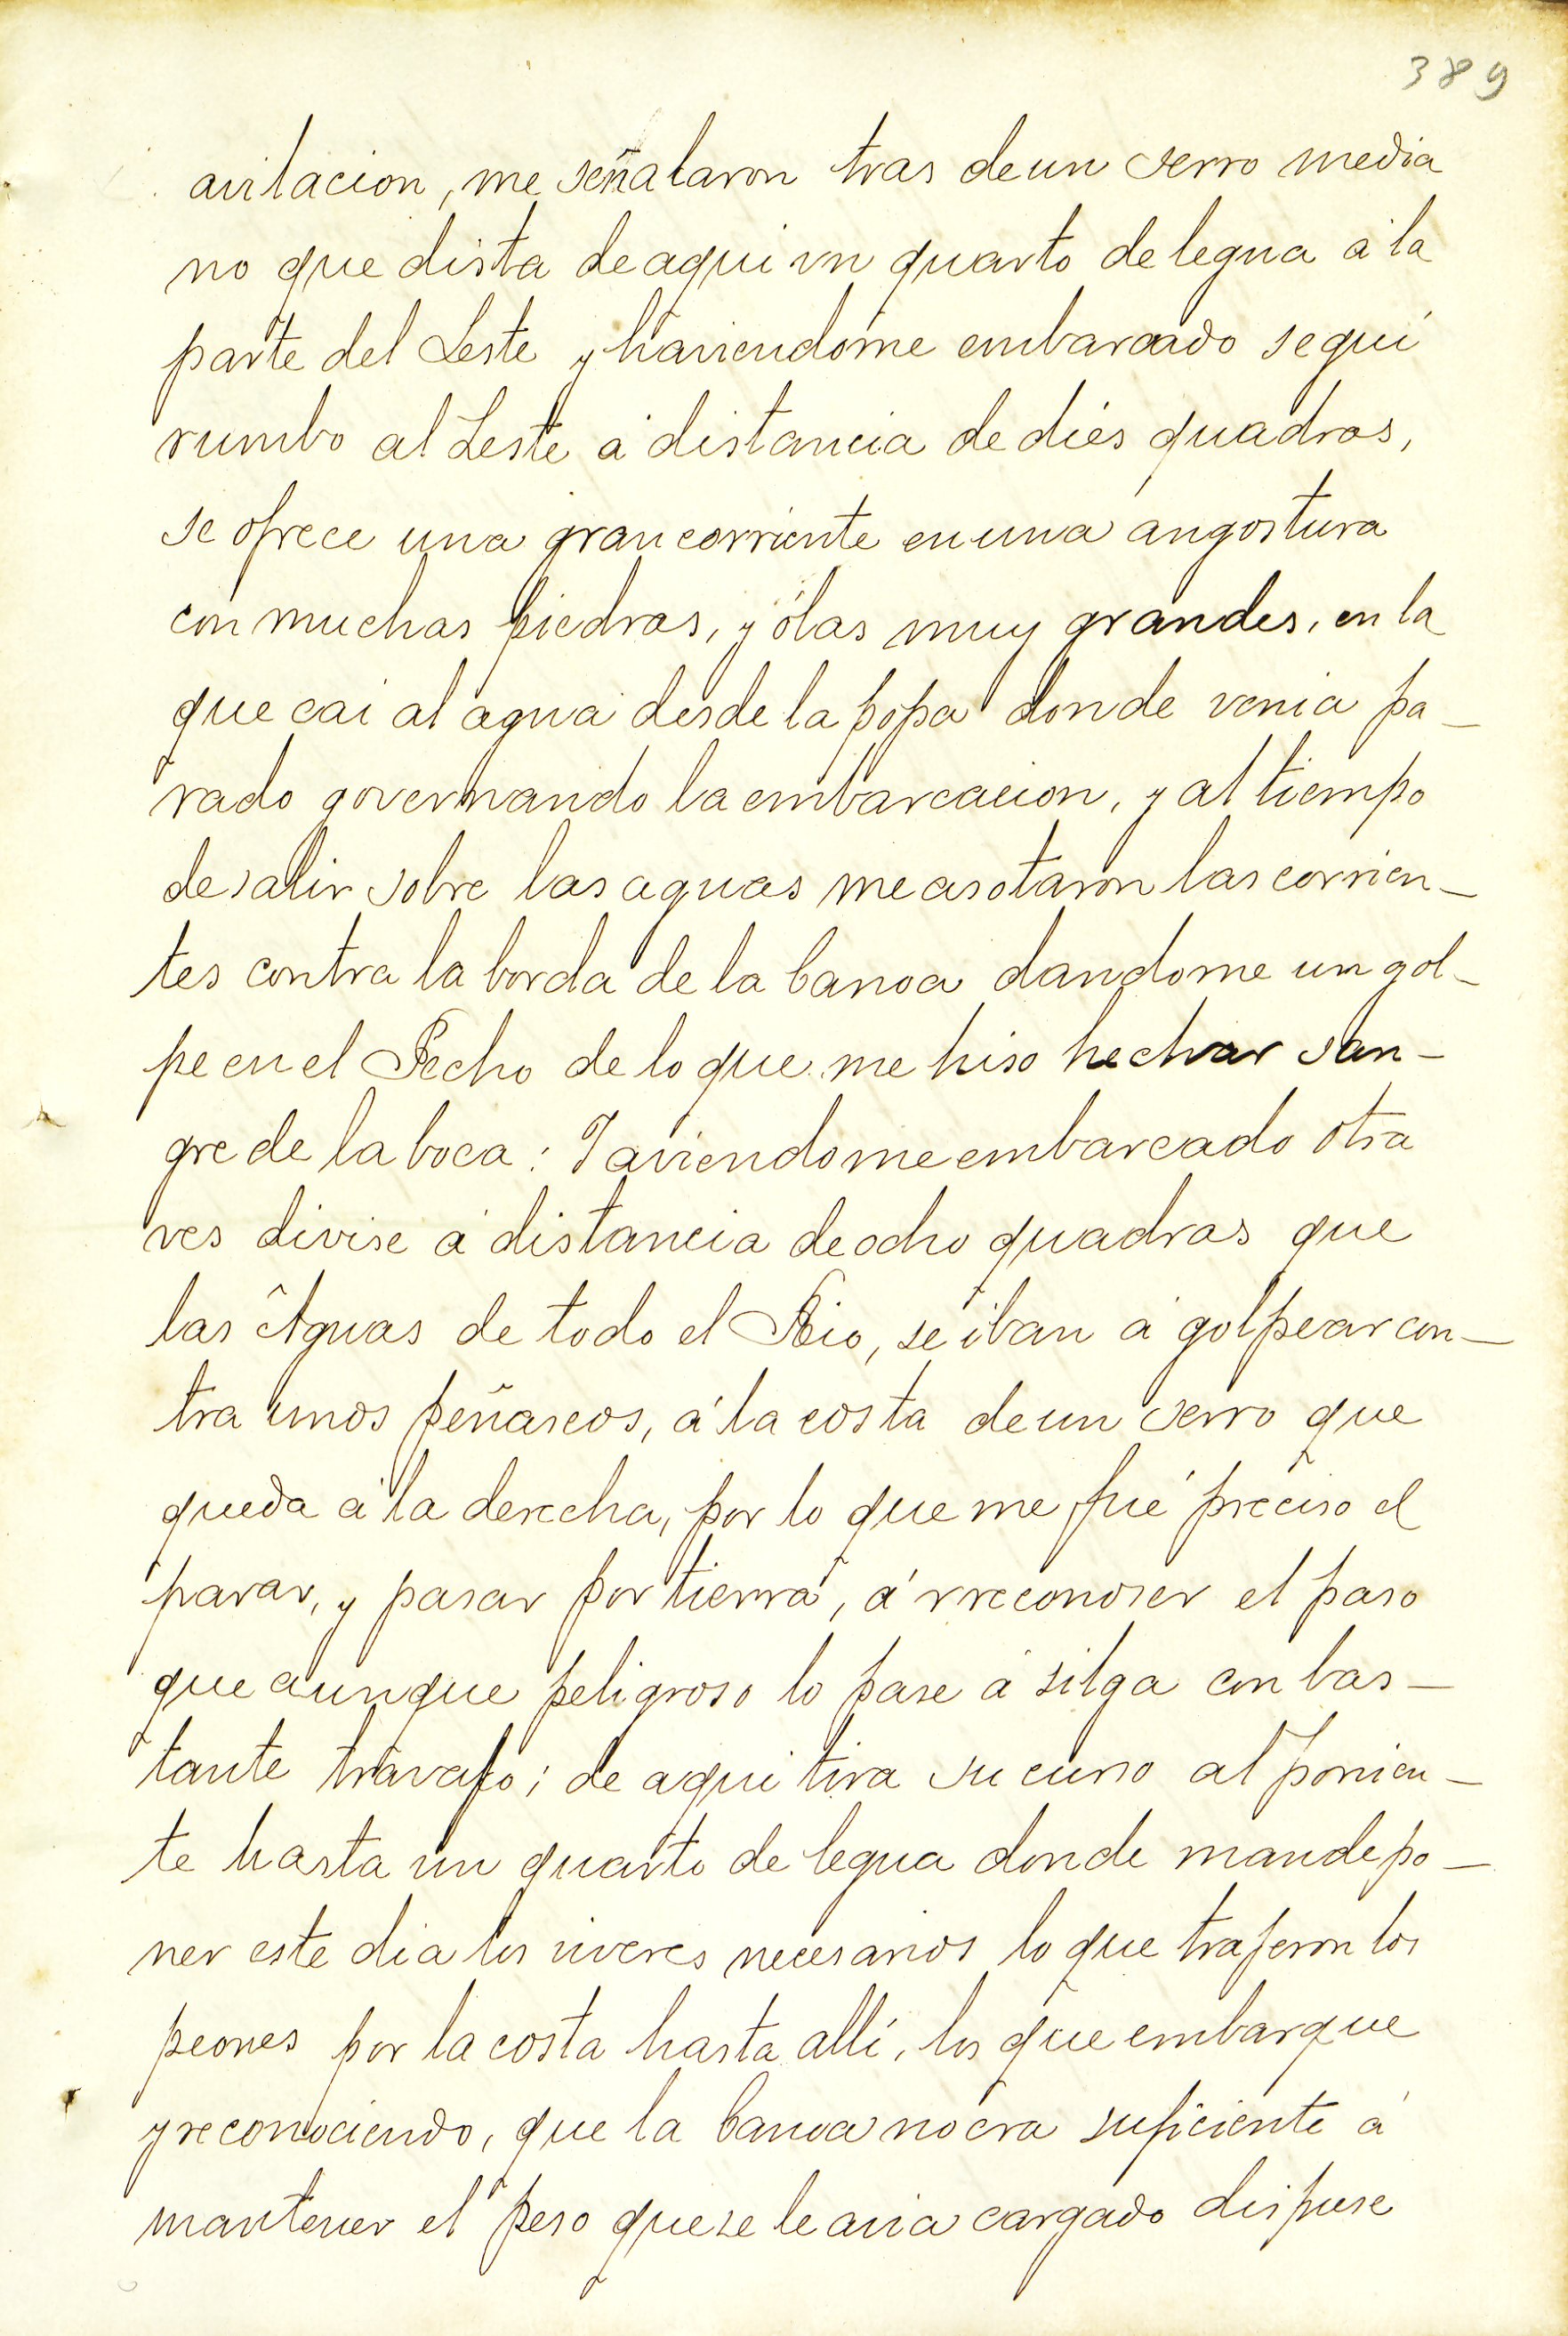 389
avitacion, me señalaron tras de un serro media
no que dista de aqui vn quarto de legua a la
parte del Leste y haviendome embarcado segui
rumbo al Leste á distancia de diés quadras,
se ofrece una gran corriente en una angostura
con muchas piedras, y ólas muy grandes, en la
que cai al agua desde la popa donde venia pa_
rado governando la embarcacion, y al tiempo
de salir sobre las aguas me asotaron las corrien_
tes contra la borda de la Canoa dandome un gol_
pe en el Pecho de lo que me hiso hechar san_
gre de la boca: I aviendome embarcado otra
ves divise á distancia de ocho quadras que
las Aguas de todo el Rio, se iban á golpear con_
tra unos peñascos, á la costa de un serro que
queda á la derecha, por lo que me fué preciso el
parar, y pasar por tierra, á rreconoser el paso
que aunque peligroso lo pase á silga con bas_
tante travajo; de aqui tira su curso al ponien_
te hasta un quarto de legua donde mande po_
ner este dia los viveres necesarios lo que trajeron los
peones por la costa hasta allí, los que embarque
y reconociendo, que la Canoa no era suficiente á
mantener el peso que se le avia cargado dispuse